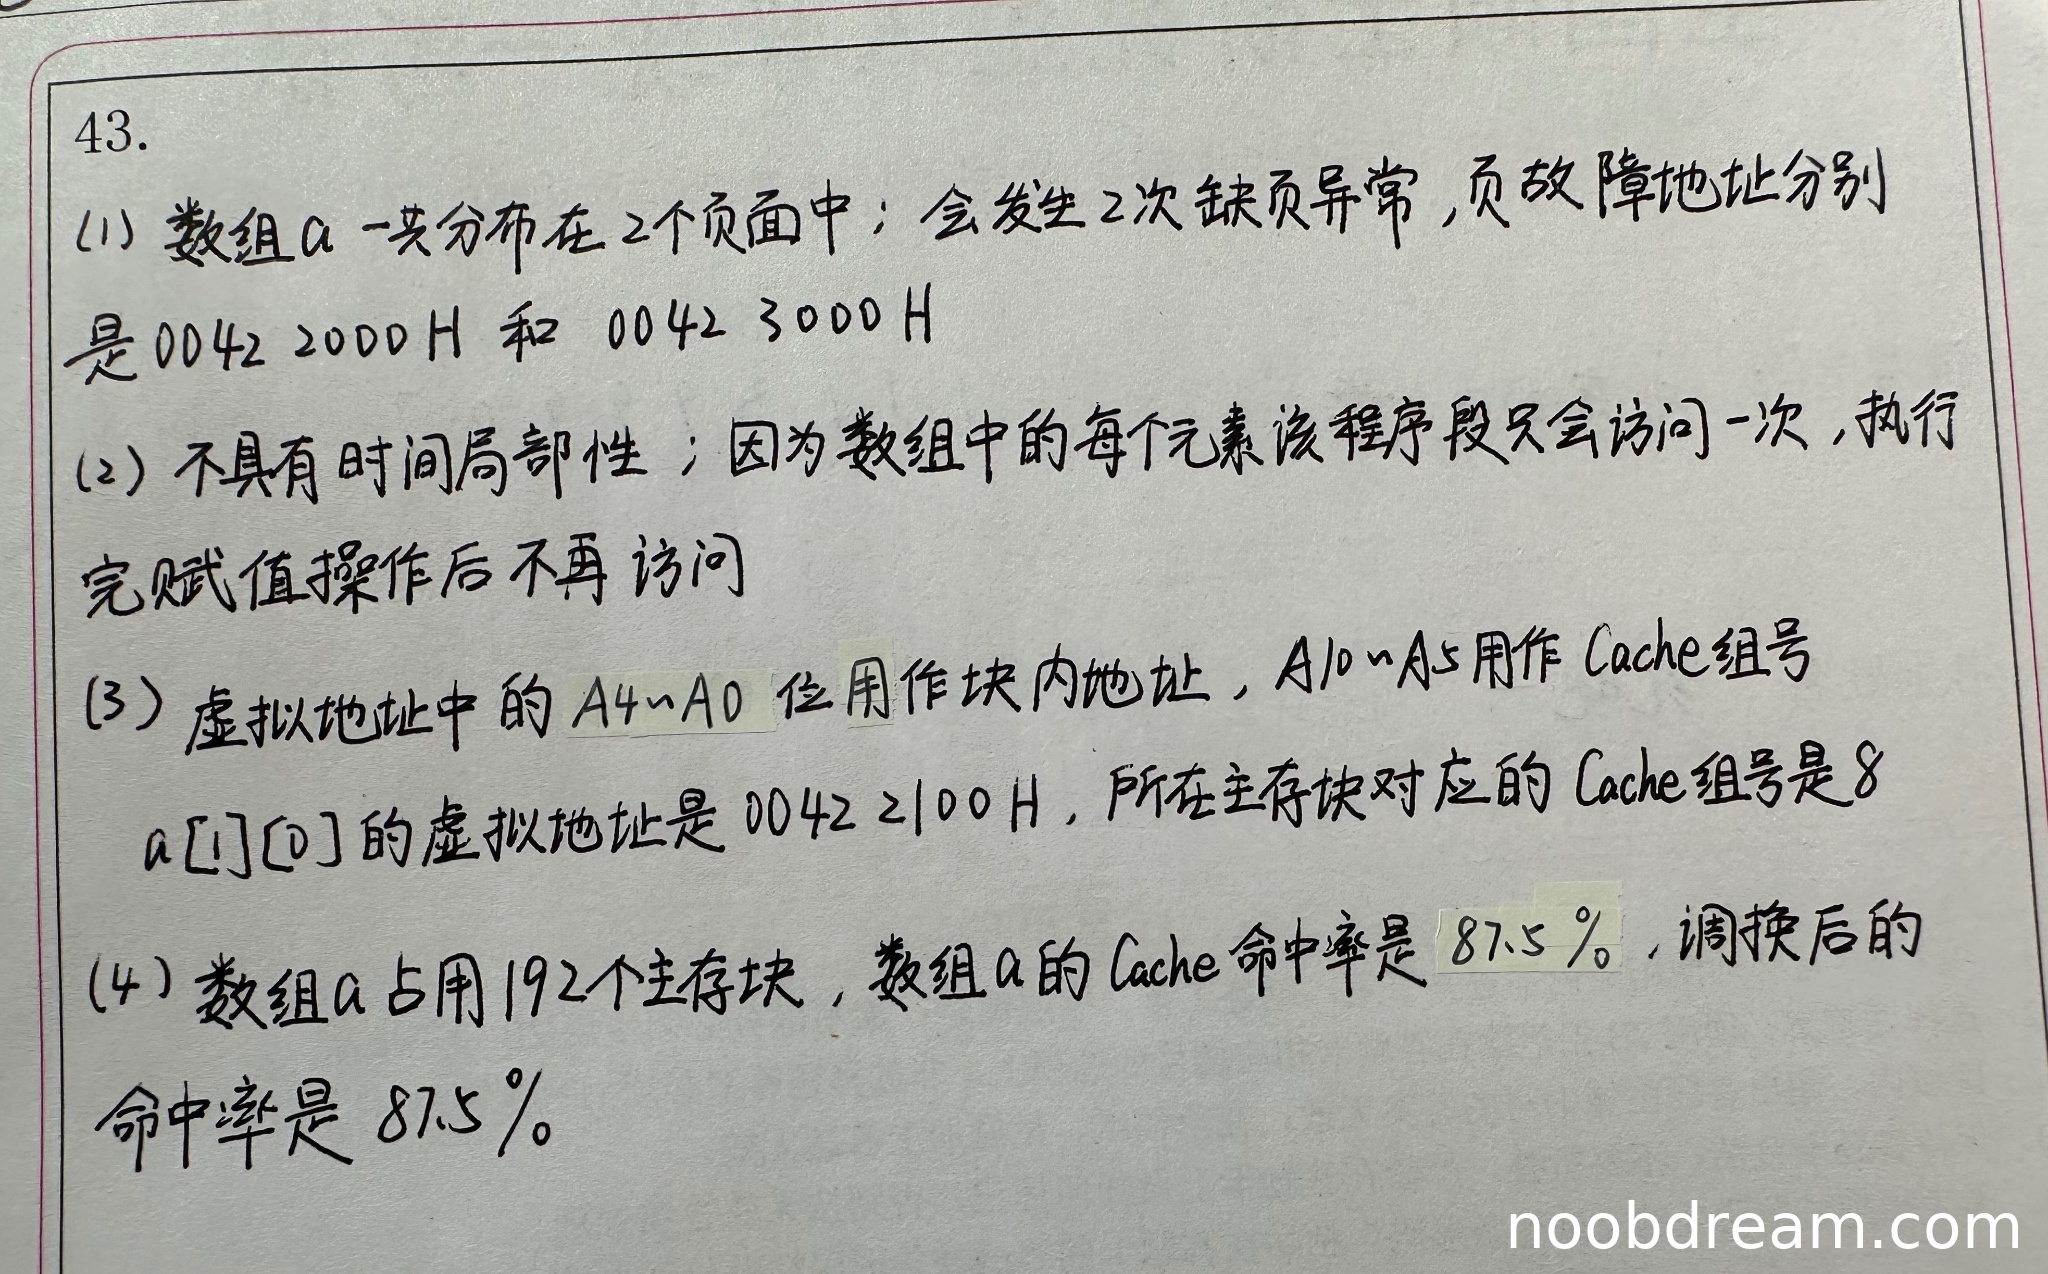 43.
(1) 数组a一共分布在2个页面中；会发生2次缺页异常，页故障地址分别
是0042 2000H 和 0042 3000H
(2) 不具有时间局部性；因为数组中的每个元素该程序段只会访问一次，执行
完赋值操作后不再访问
(3) 虚拟地址中的A4~A0位用作块内地址，A10~A5用作Cache组号
a[1][0]的虚拟地址是0042 2100H，所在主存块对应的Cache组号是8
(4) 数组a占用192个主存块，数组a的Cache命中率是87.5%，调换后的
命中率是 87.5%
noobdream.com